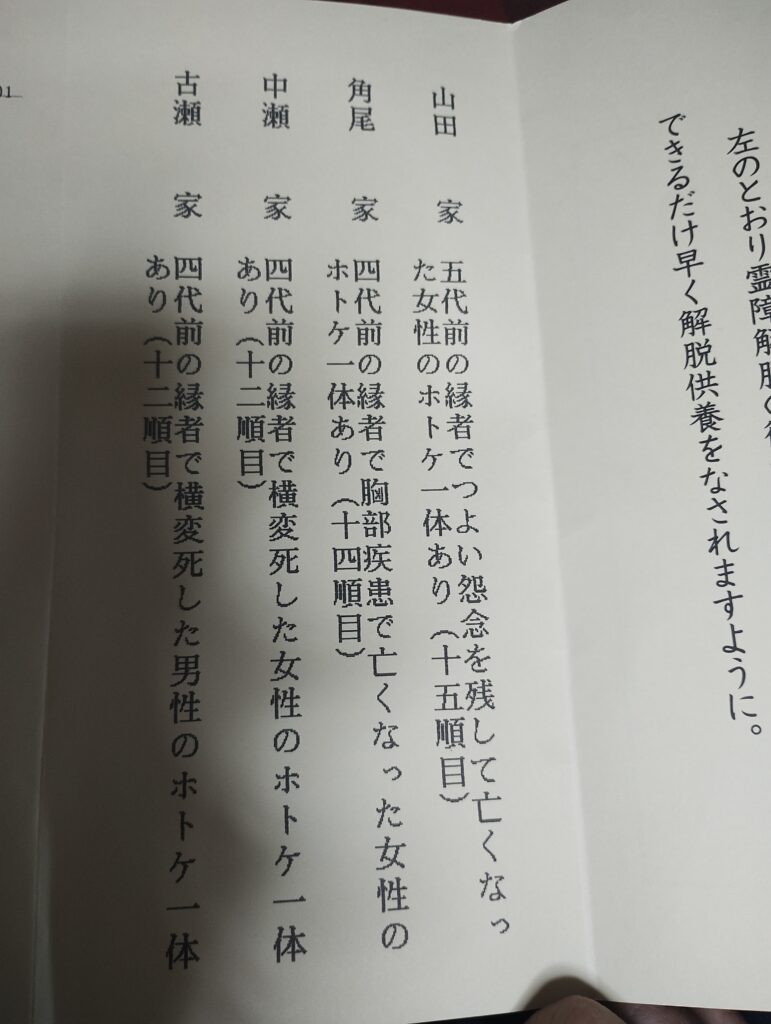 左のとおり霊障解脱
できるだけ早く解脱供養をなされますように。
山田 家 五代前の縁者でつよい怨念を残して亡くなっ
た女性のホトケ一体あり(十五順目)
角尾 家 四代前の縁者で胸部疾患で亡くなった女性の
ホトケ一体あり(十四順目)
中瀬 家 四代前の縁者で横変死した女性のホトケ一体
あり(十二順目)
古瀬 家 四代前の縁者で横変死した男性のホトケ一体
あり(十二順目)
01